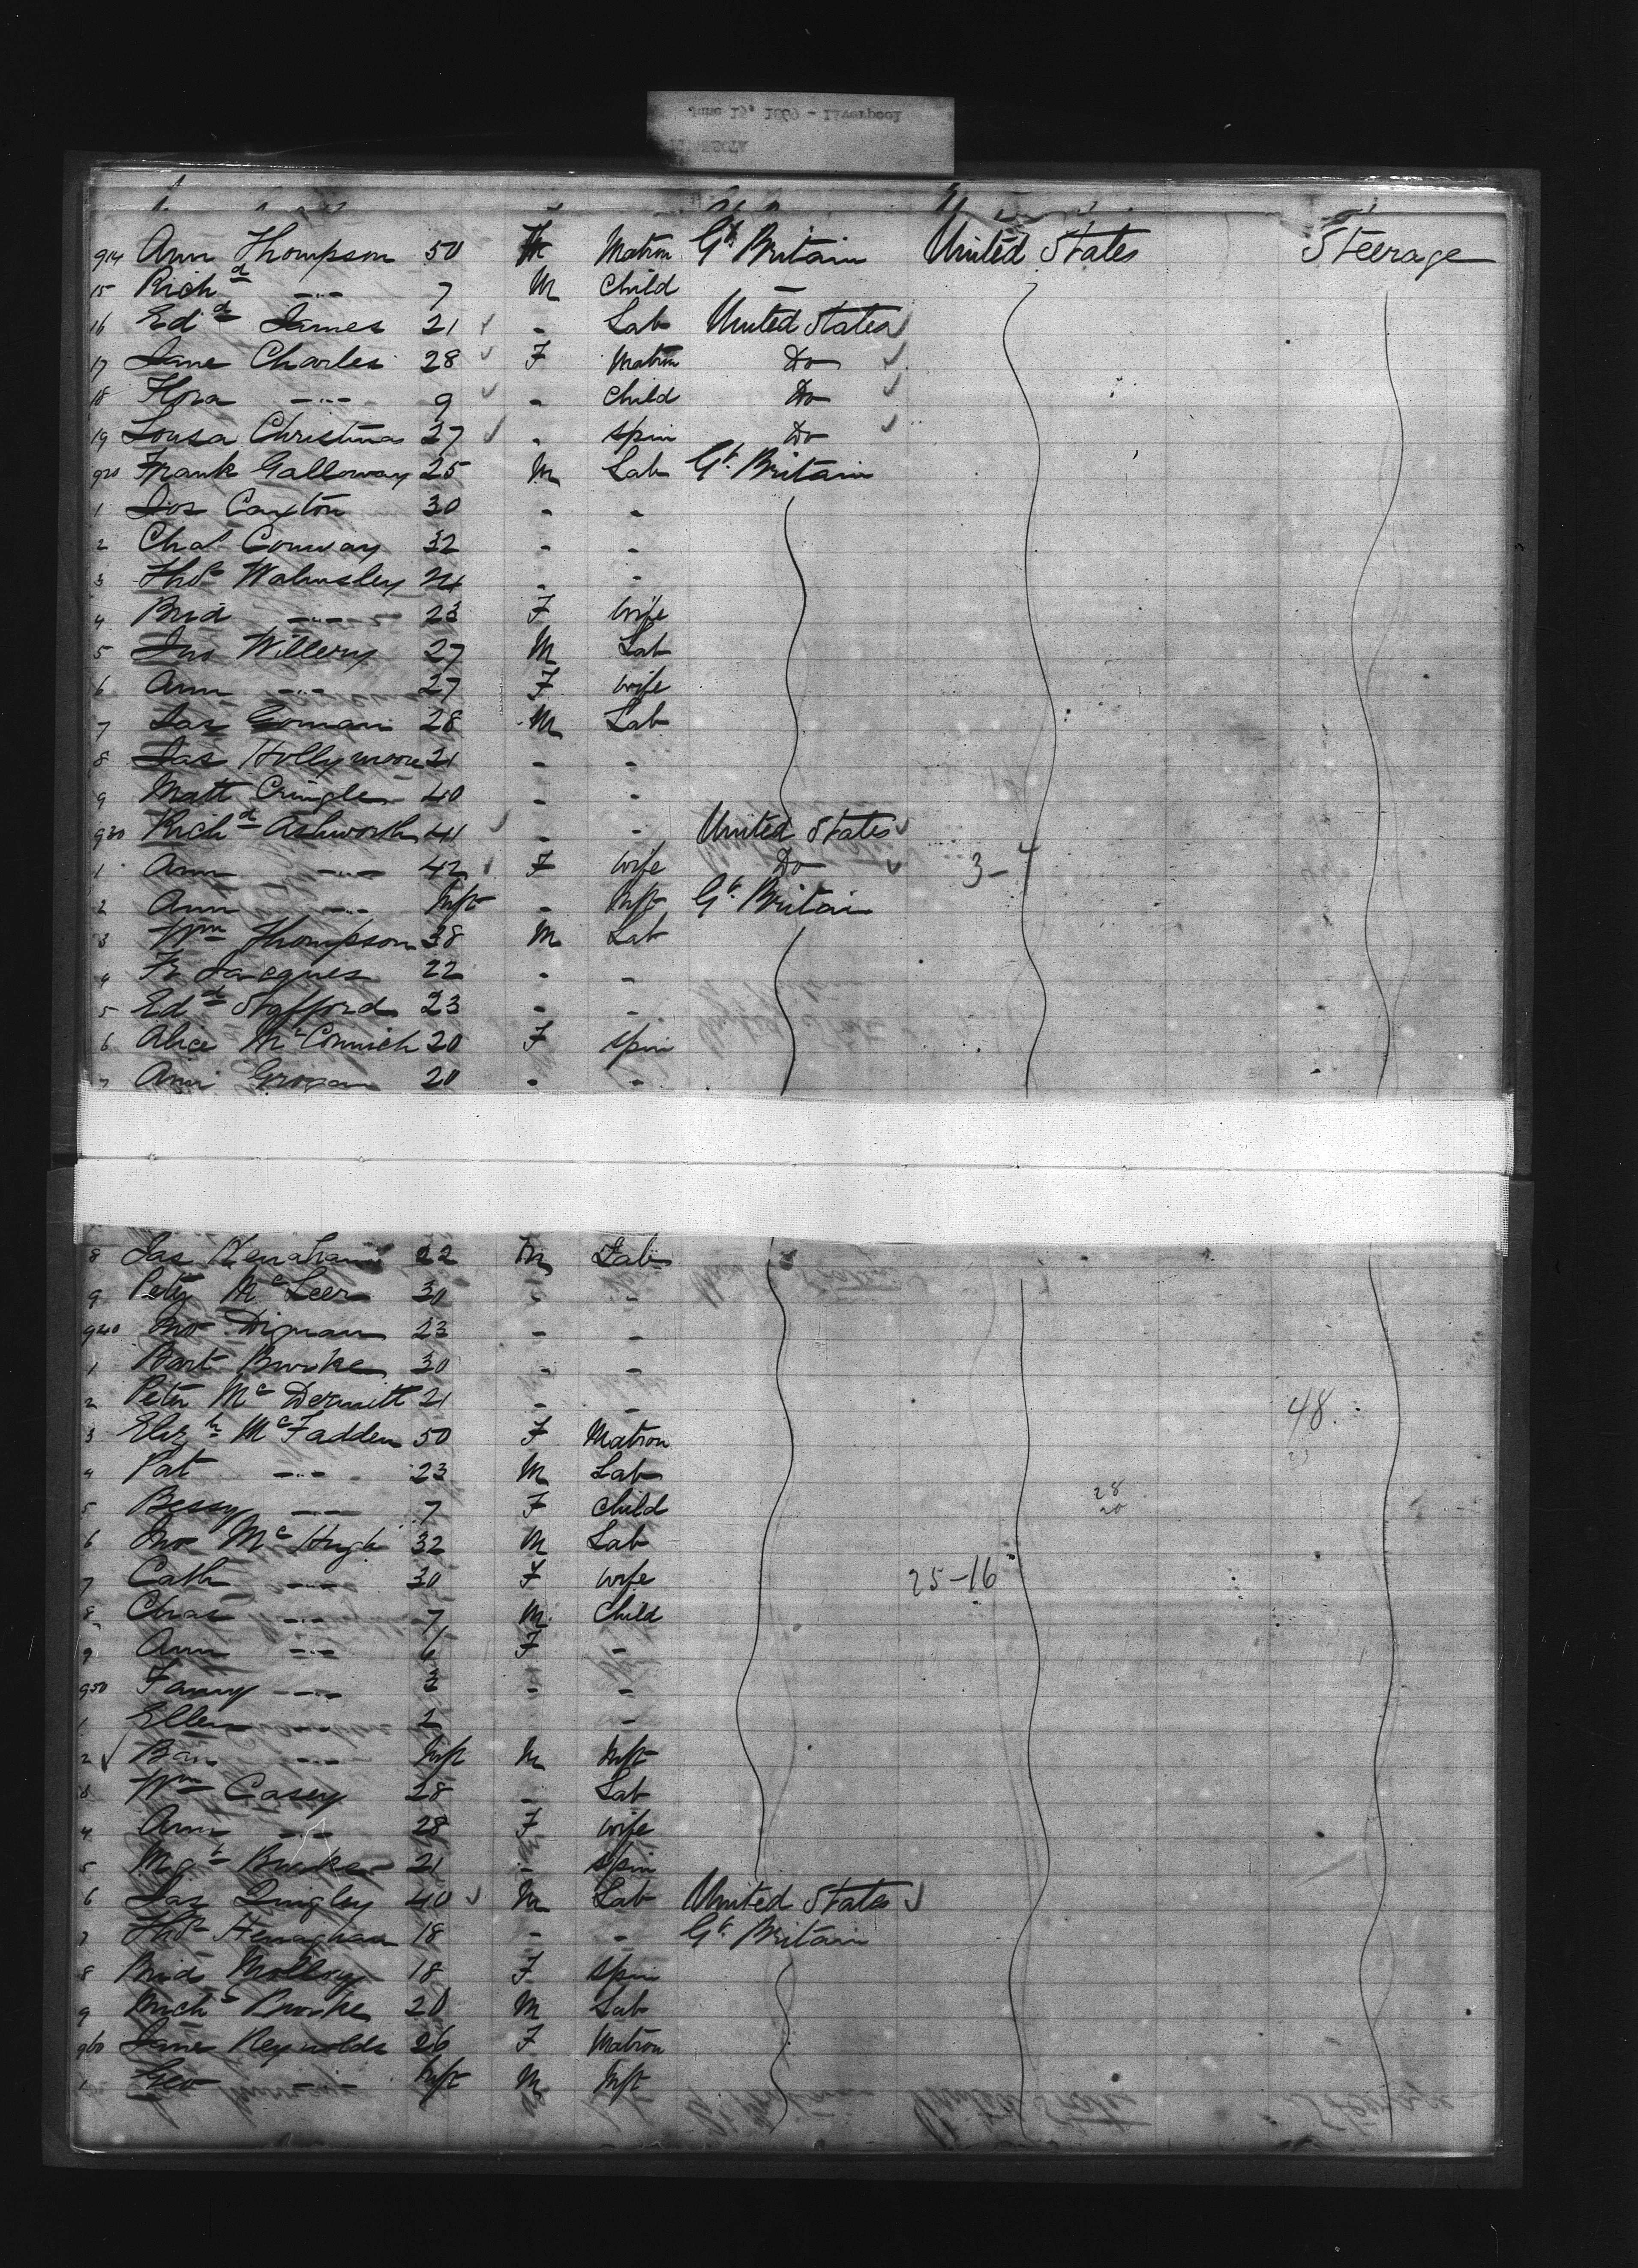 June 15, 1869 - Liverpool
914 Ann Thompson 50 F Matron Gt. Britain United States Steerage
15 Richd -"- 7 M Child
16 Edd James 21 ✓ - Lab United States ✓
17 Jane Charles 28 ✓ F Matron Do ✓
18 Flora -"- 9 ✓ - Child Do ✓
19 Lousa Christmas 27 ✓ - Spin Do ✓
920 Frank Galloway 25 M Lab Gt. Britain
1 Jos Caxton 30 - -
2 Chas Conway 32 - -
3 Thos Walmsley 24 - -
4 Brid -"- 23 F Wife
5 Jno Willery 27 M Lab
6 Ann -"- 27 F Wife
7 Jas Goman 28 M Lab
8 Jas Hollymoore 21 - -
9 Matt Cringle 40 - -
930 Richd Ashworth 41 ✓ - - United States ✓
1 Ann -"- 42 ✓ F Wife Do ✓ 3-4
2 Ann -"- Inft - Inft Gt. Britain
3 Wm Thompson 38 M Lab
4 Fr Jacques 22 - -
5 Edd Stafford 23 - -
6 Alice McConnich 20 F Spin
7 Ann Grogan 20 - -
8 Jas 22 M Lab
9 Peter McLeer 30 - -
940 Jno Dignan 23 - -
1 Bart Burke 30 - -
2 Peter McDermitt 21 - -
48
3 Elizh McFadden 50 F Matron
4 Pat -"- 23 M Lab
5 Bessy -"- 7 F Child
28
20
6 Jno McHugh 32 M Lab
7 Cath -"- 30 F Wife 25-16
8 Chas -"- 7 M Child
9 Ann -"- 6 F -
950 Fanny -"- 3 - -
1 Ellen -"- 2 -
2 ✓ Ban -"- Inft M Inft
3 Wm Casey 28 - Lab
4 Ann -"- 28 F Wife
5 Mgt Burke 21 - Spin
6 Jas Quigley 40 ✓ M Lab United States ✓
7 Thos Henaghan 18 - - Gt. Britain
8 Brid Molloy 18 F Spin
9 Michl Burke 20 M Lab
960 Jane Reynolds 26 F Matron
1 Geo -"- Inft M Inft